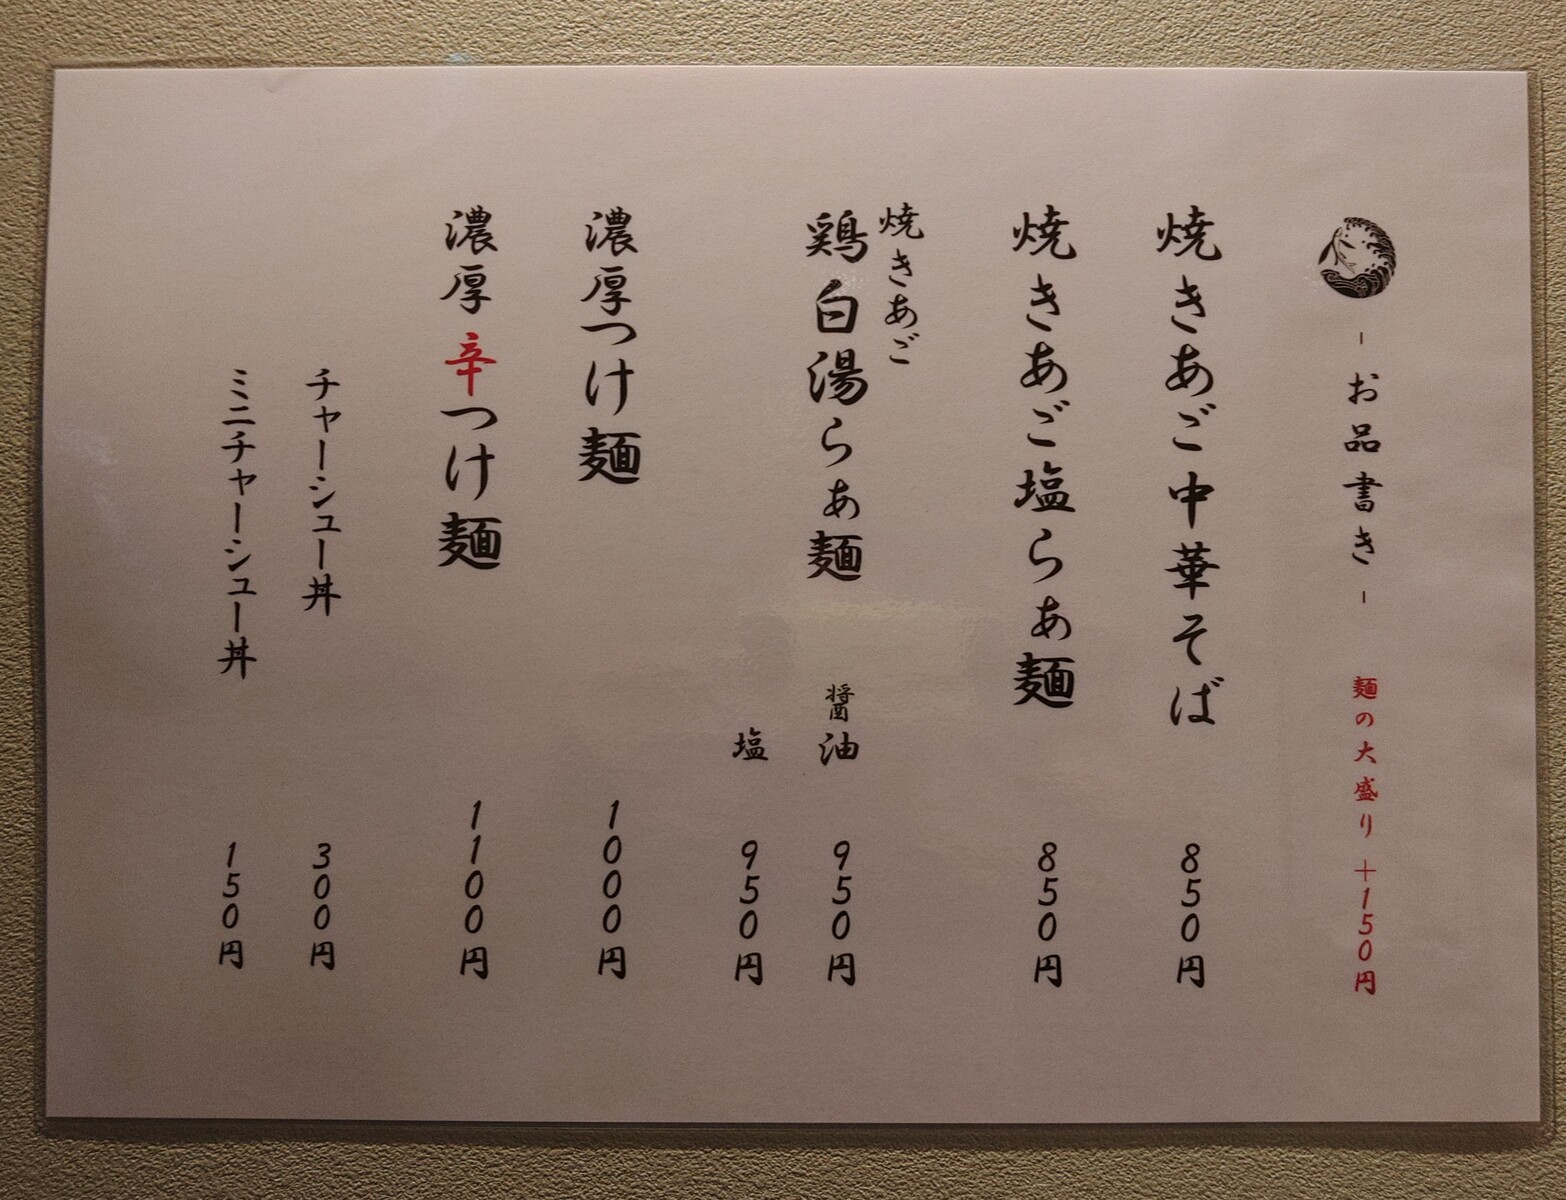 -お品書き- 麺の大盛り +150円
焼きあご中華そば 850円
焼きあご塩らぁ麺 850円
焼きあご
鶏白湯らぁ麺 醤油 950円
塩 950円
濃厚つけ麺 1000円
濃厚辛つけ麺 1100円
チャーシュー丼 300円
ミニチャーシュー丼 150円